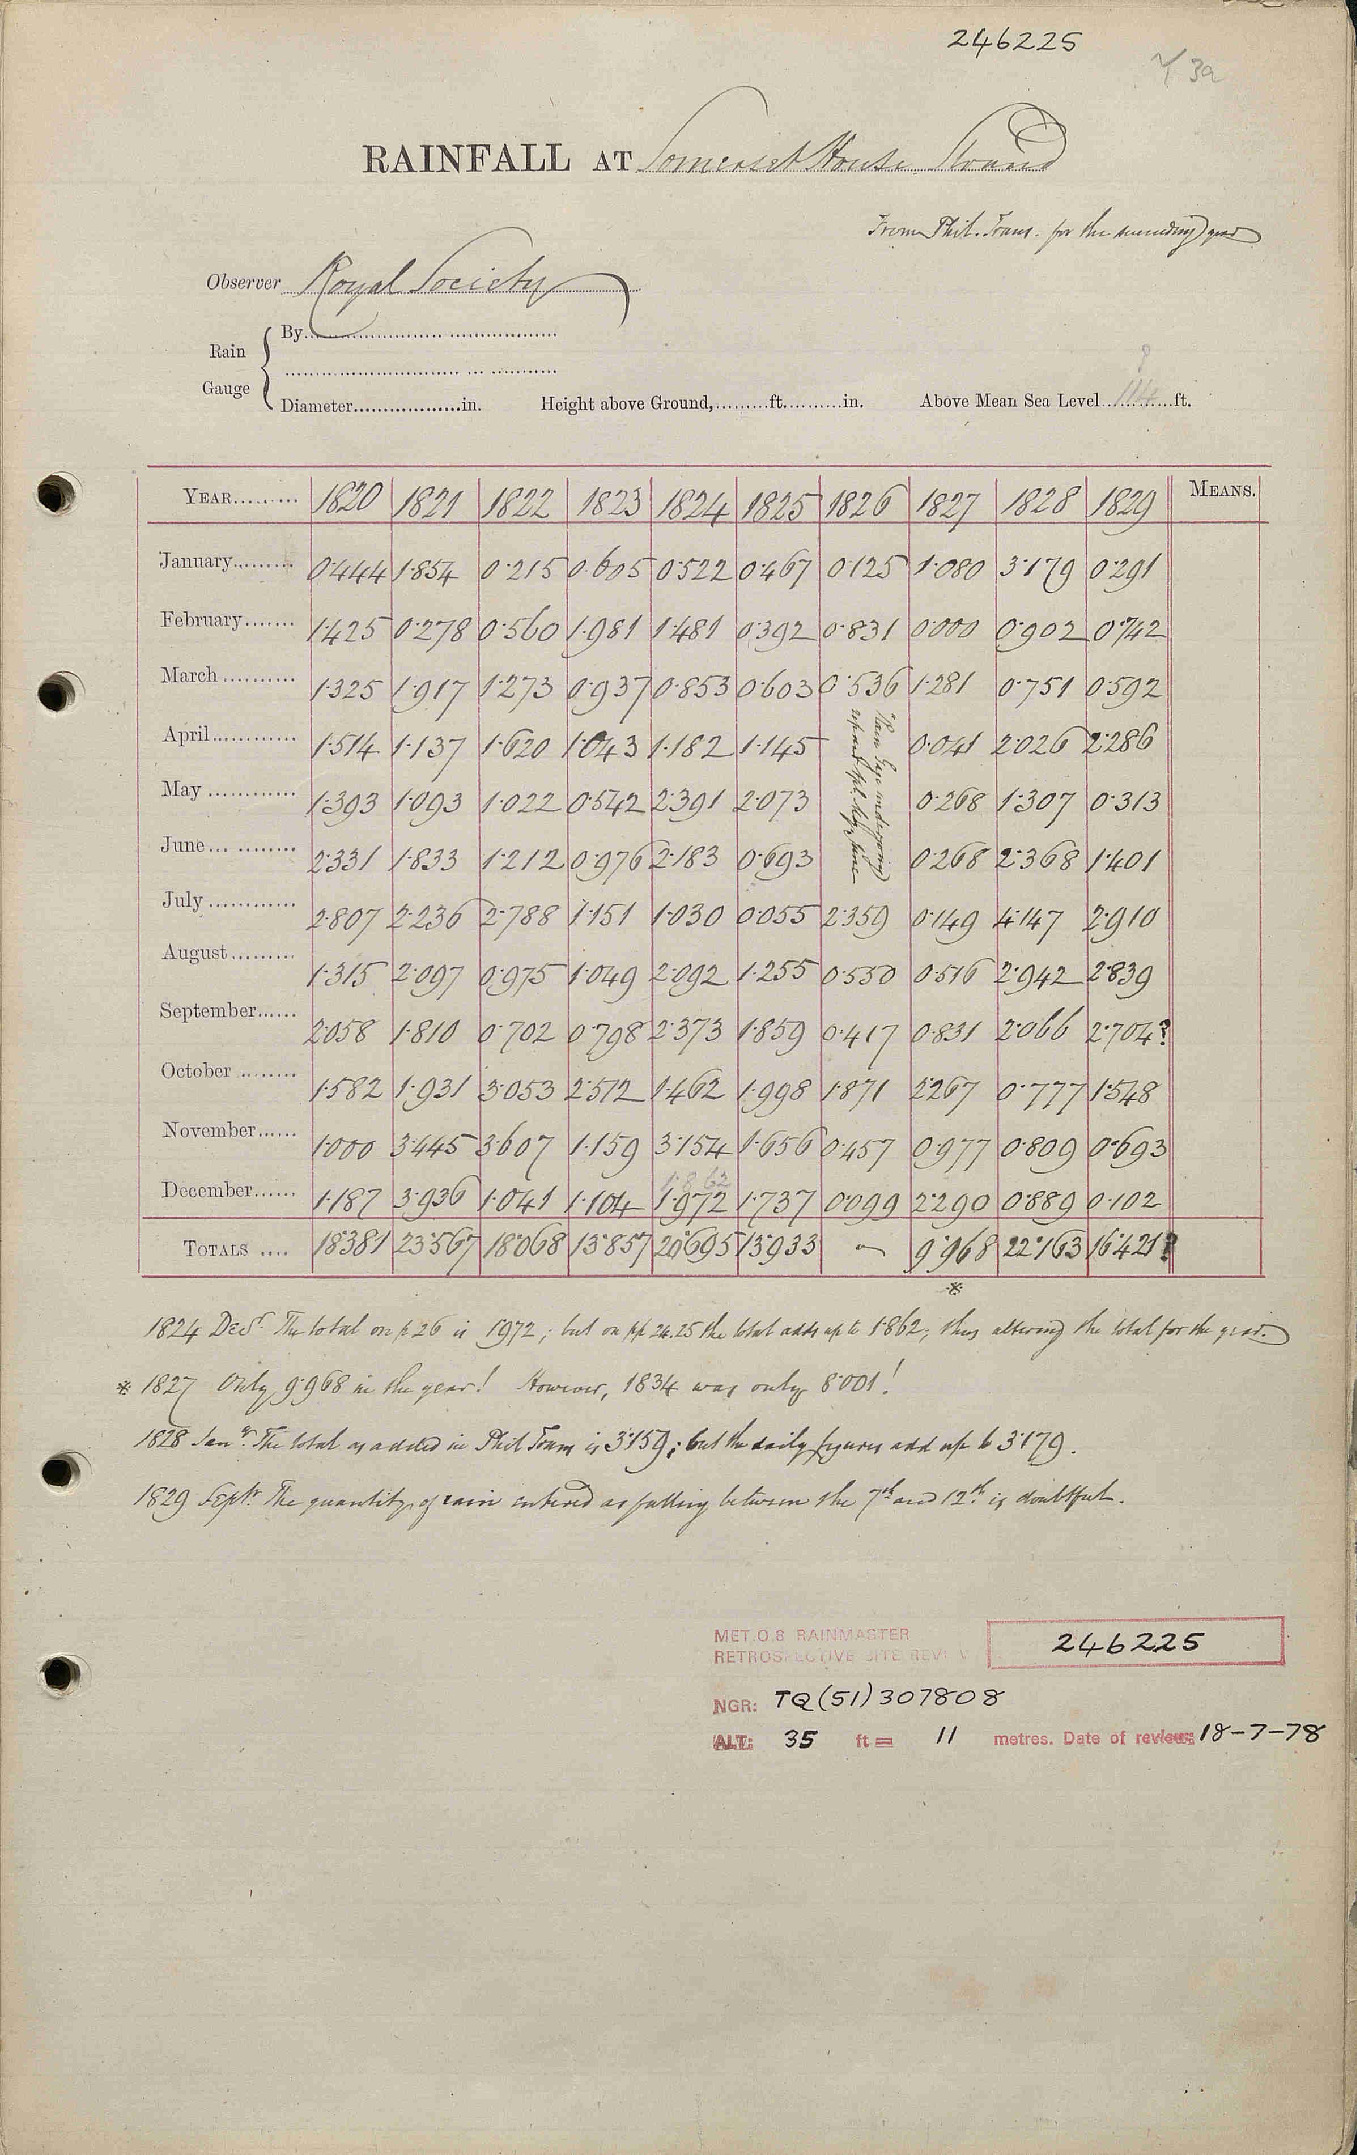 246225
3a
RAINFALL AT Somerset House Strand
From Phil. Trans. for the succeeding year
Observer Royal Society
Rain Gauge
By
Diameter in. Height above Ground, ft. in. Above Mean Sea Level 114 ft.
?
YEAR 1820 1821 1822 1823 1824 1825 1826 1827 1828 1829 MEANS.
January 0·444 1·854 0·215 0·605 0·522 0·467 0·125 1·080 3·179 0·291
February 1·425 0·278 0·560 1·981 1·481 0·392 0·831 0·000 0·902 0·742
March 1·325 1·917 1·273 0·937 0·853 0·603 0·536 1·281 0·751 0·592
April 1·514 1·137 1·620 1·043 1·182 1·145 0·041 2·026 2·286
May 1·393 1·093 1·022 0·542 2·391 2·073 0·268 1·307 0·313
June 2·331 1·833 1·212 0·976 2·183 0·693 0·268 2·368 1·401
Rain Gage undergoing
repair Apl. May, June
July 2·807 2·236 2·788 1·151 1·030 0·055 2·359 0·149 4·147 2·910
August 1·315 2·097 0·975 1·049 2·092 1·255 0·550 0·516 2·942 2·839
September 2·058 1·810 0·702 0·798 2·373 1·859 0·417 0·831 2·066 2·704?
October 1·582 1·931 3·053 2·512 1·462 1·998 1·871 2·267 0·777 1·548
November 1·000 3·445 3·607 1·159 3·154 1·656 0·457 0·977 0·809 0·693
1·862
December 1·187 3·936 1·041 1·104 1·972 1·737 0·099 2·290 0·889 0·102
TOTALS 18·381 23·567 18·068 13·857 20·695 13·933 — 9·968 22·163 16·421?
*
1824 Decr. The total on p 26 is 1·972; but on pp 24.25 the total adds up to 1·862; thus altering the total for the year.
* 1827 Only 9·968 in the year! However, 1834 was only 8·001!
1828 Jany. The total as added in Phil Trans is 3·159; but the daily figures add up to 3·179.
1829 Septr. The quantity of rain entered as falling between the 7th and 12th is doubtful.
MET.O.8 RAINMASTER
RETROSPECTIVE SITE REVIEW 246225
NGR: TQ(51)307808
ALT: 35 ft = 11 metres. Date of review: 18-7-78